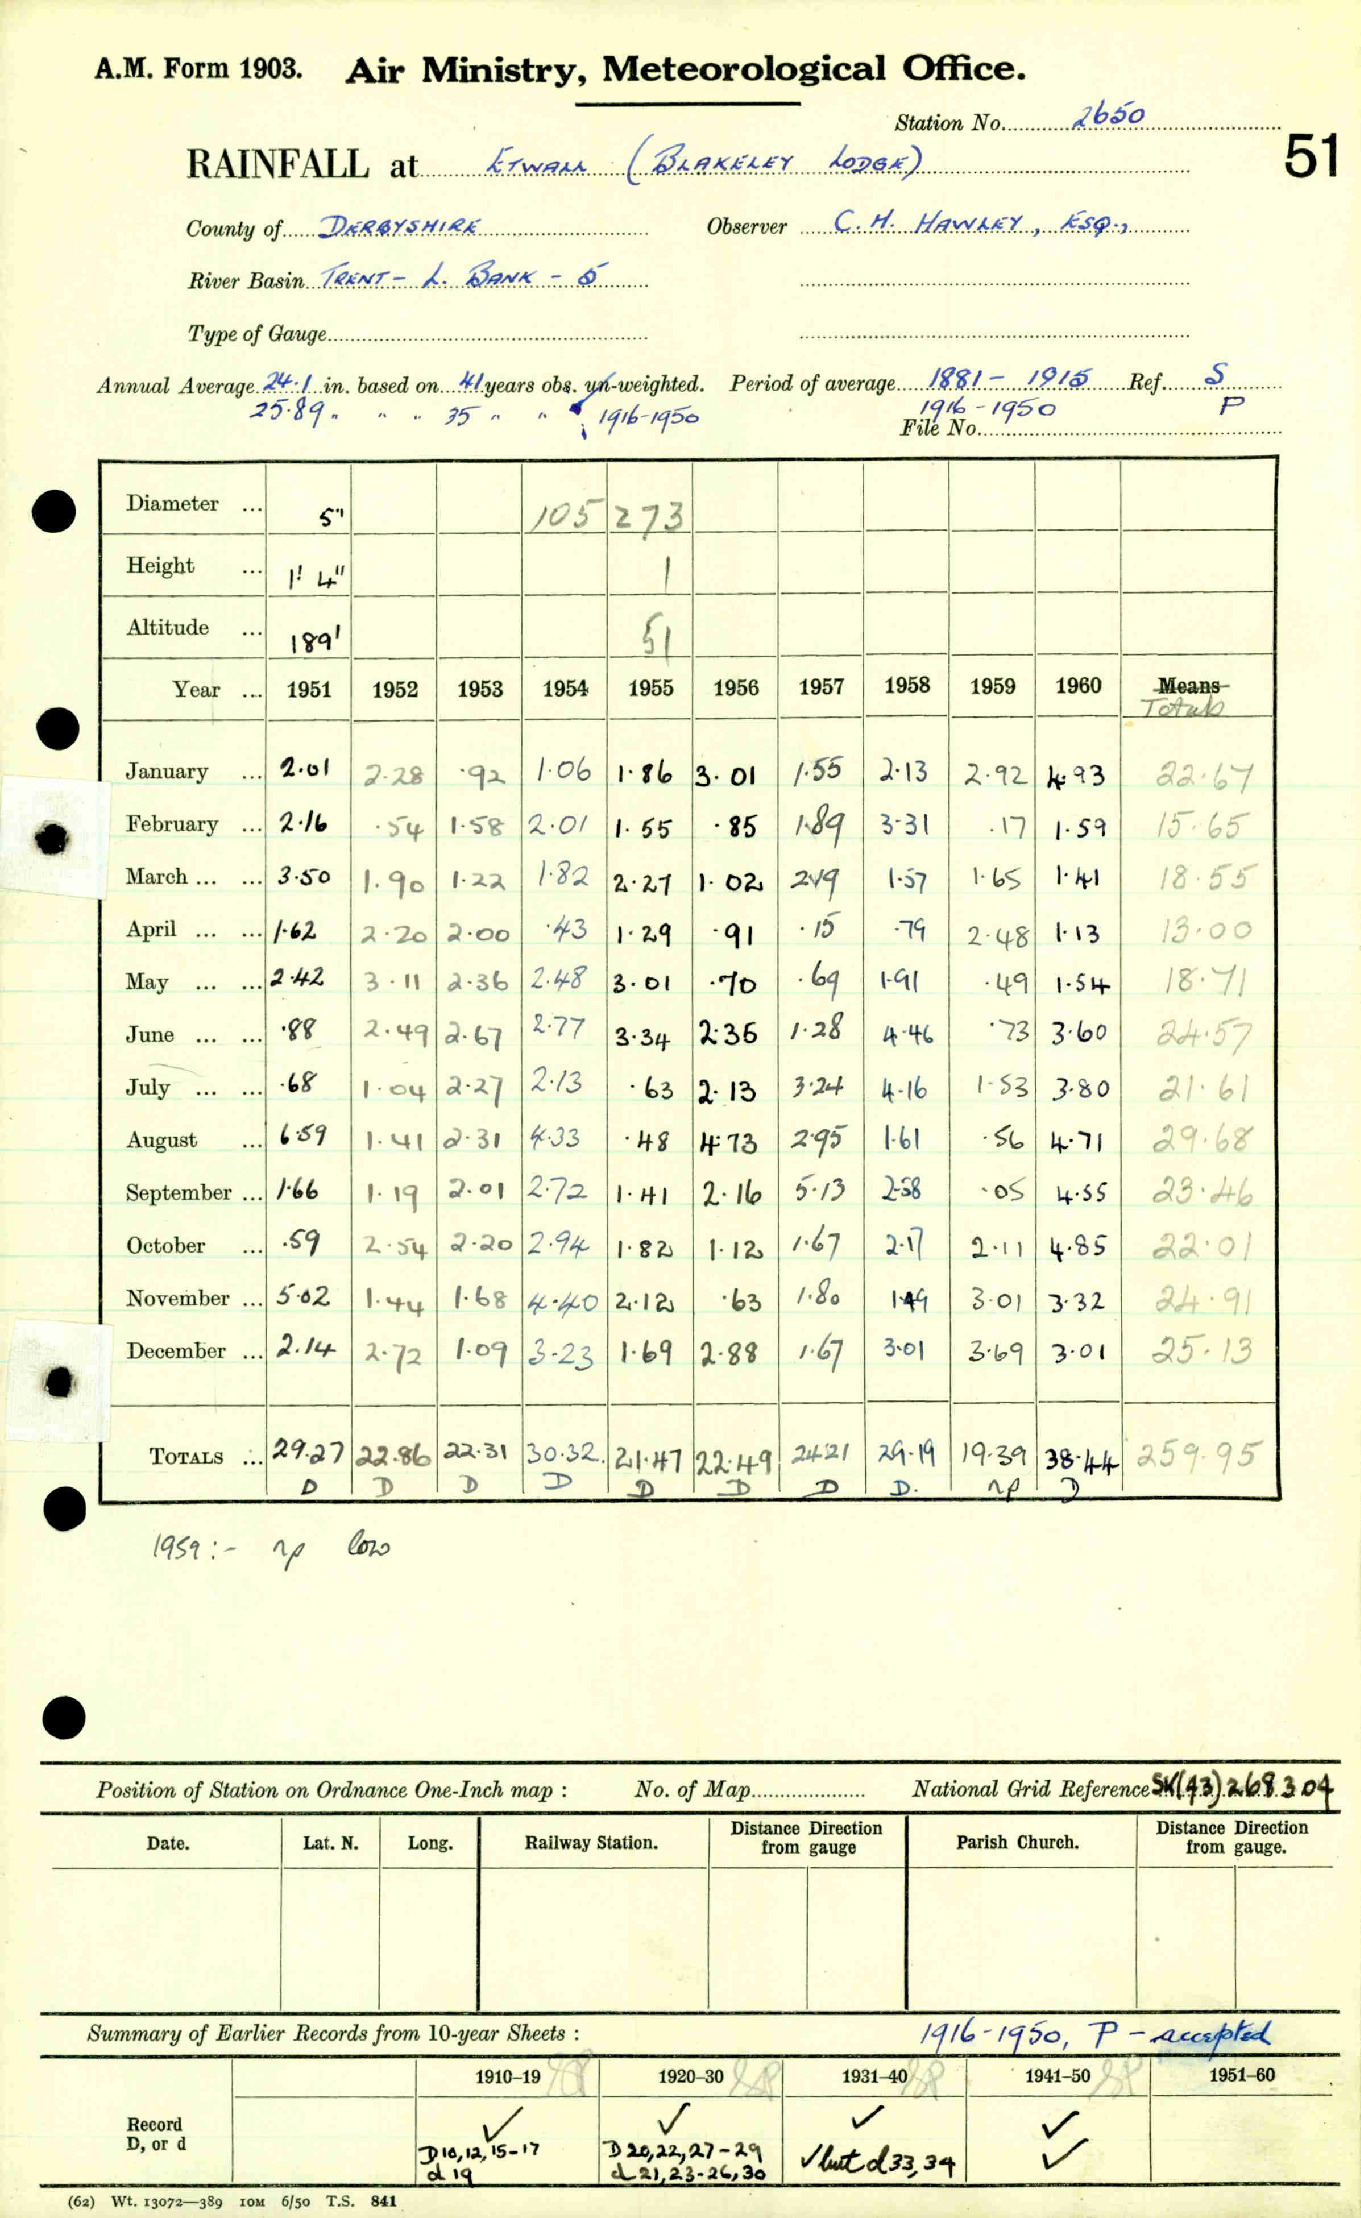 A.M. Form 1903. Air Ministry, Meteorological Office.
Station No. 2650
51
RAINFALL at Etwall (Blakeley Lodge)
County of Derbyshire Observer C. H. Hawley, Esq.,
River Basin Trent - L. Bank - 5
Type of Gauge
Annual Average 24.1 in. based on 41 years obs. un-weighted. Period of average 1881 - 1915 Ref. S
25.89 " " " 35 " " 1916-1950 1916 - 1950 P
File No.
Diameter ... 5" 105 273
Height ... 1' 4" 1
Altitude ... 189' 51
Year ... 1951 1952 1953 1954 1955 1956 1957 1958 1959 1960 Means
Totals
January ... 2.01 2.28 .92 1.06 1.86 3.01 1.55 2.13 2.92 4.93 22.67
February ... 2.16 .54 1.58 2.01 1.55 .85 1.89 3.31 .17 1.59 15.65
March ... ... 3.50 1.90 1.22 1.82 2.27 1.02 2.19 1.57 1.65 1.41 18.55
April ... ... 1.62 2.20 2.00 .43 1.29 .91 .15 .79 2.48 1.13 13.00
May ... ... 2.42 3.11 2.36 2.48 3.01 .70 .69 1.91 .49 1.54 18.71
June ... ... .88 2.49 2.67 2.77 3.34 2.35 1.28 4.46 .73 3.60 24.57
July ... ... .68 1.04 2.27 2.13 .63 2.13 3.24 4.16 1.53 3.80 21.61
August ... 6.59 1.41 2.31 4.33 .48 4.73 2.95 1.61 .56 4.71 29.68
September ... 1.66 1.19 2.01 2.72 1.41 2.16 5.13 2.58 .05 4.55 23.46
October ... .59 2.54 2.20 2.94 1.82 1.12 1.67 2.17 2.11 4.85 22.01
November ... 5.02 1.44 1.68 4.40 2.12 .63 1.80 1.49 3.01 3.32 24.91
December ... 2.14 2.72 1.09 3.23 1.69 2.88 1.67 3.01 3.69 3.01 25.13
Totals ... 29.27 22.86 22.31 30.32 21.47 22.49 24.21 29.19 19.39 38.44 259.95
D D D D D D D D. np D
1959 :- np low
Position of Station on Ordnance One-Inch map : No. of Map National Grid Reference SK(43)268304
Date. Lat. N. Long. Railway Station. Distance from Direction gauge Parish Church. Distance from Direction gauge.
Summary of Earlier Records from 10-year Sheets : 1916-1950, P - accepted
1910–19 1920–30 1931–40 1941–50 1951–60
Record ✓ ✓ ✓ ✓
D, or d D10,12,15-17 D 20,22,27-29 ✓ but d 33,34 ✓
d 19 d 21,23-26,30
(62) Wt. 13072—389 10M 6/50 T.S. 841